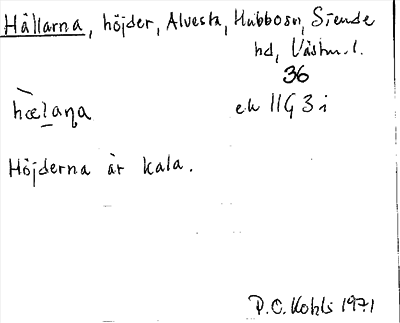 Hållarna, höjder, Alvesta, Hubbosn, Siende
hd, Västm. l.
36
hælaɳa
ek 11G 3 i
Höjderna är kala.
P.O. Kohls 1971